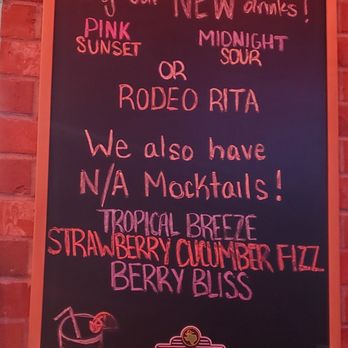 our NEW drinks!
PINK SUNSET
MIDNIGHT SOUR
OR
RODEO RITA
We also have
N/A Mocktails!
TROPICAL BREEZE
STRAWBERRY CUCUMBER FIZZ
BERRY BLISS